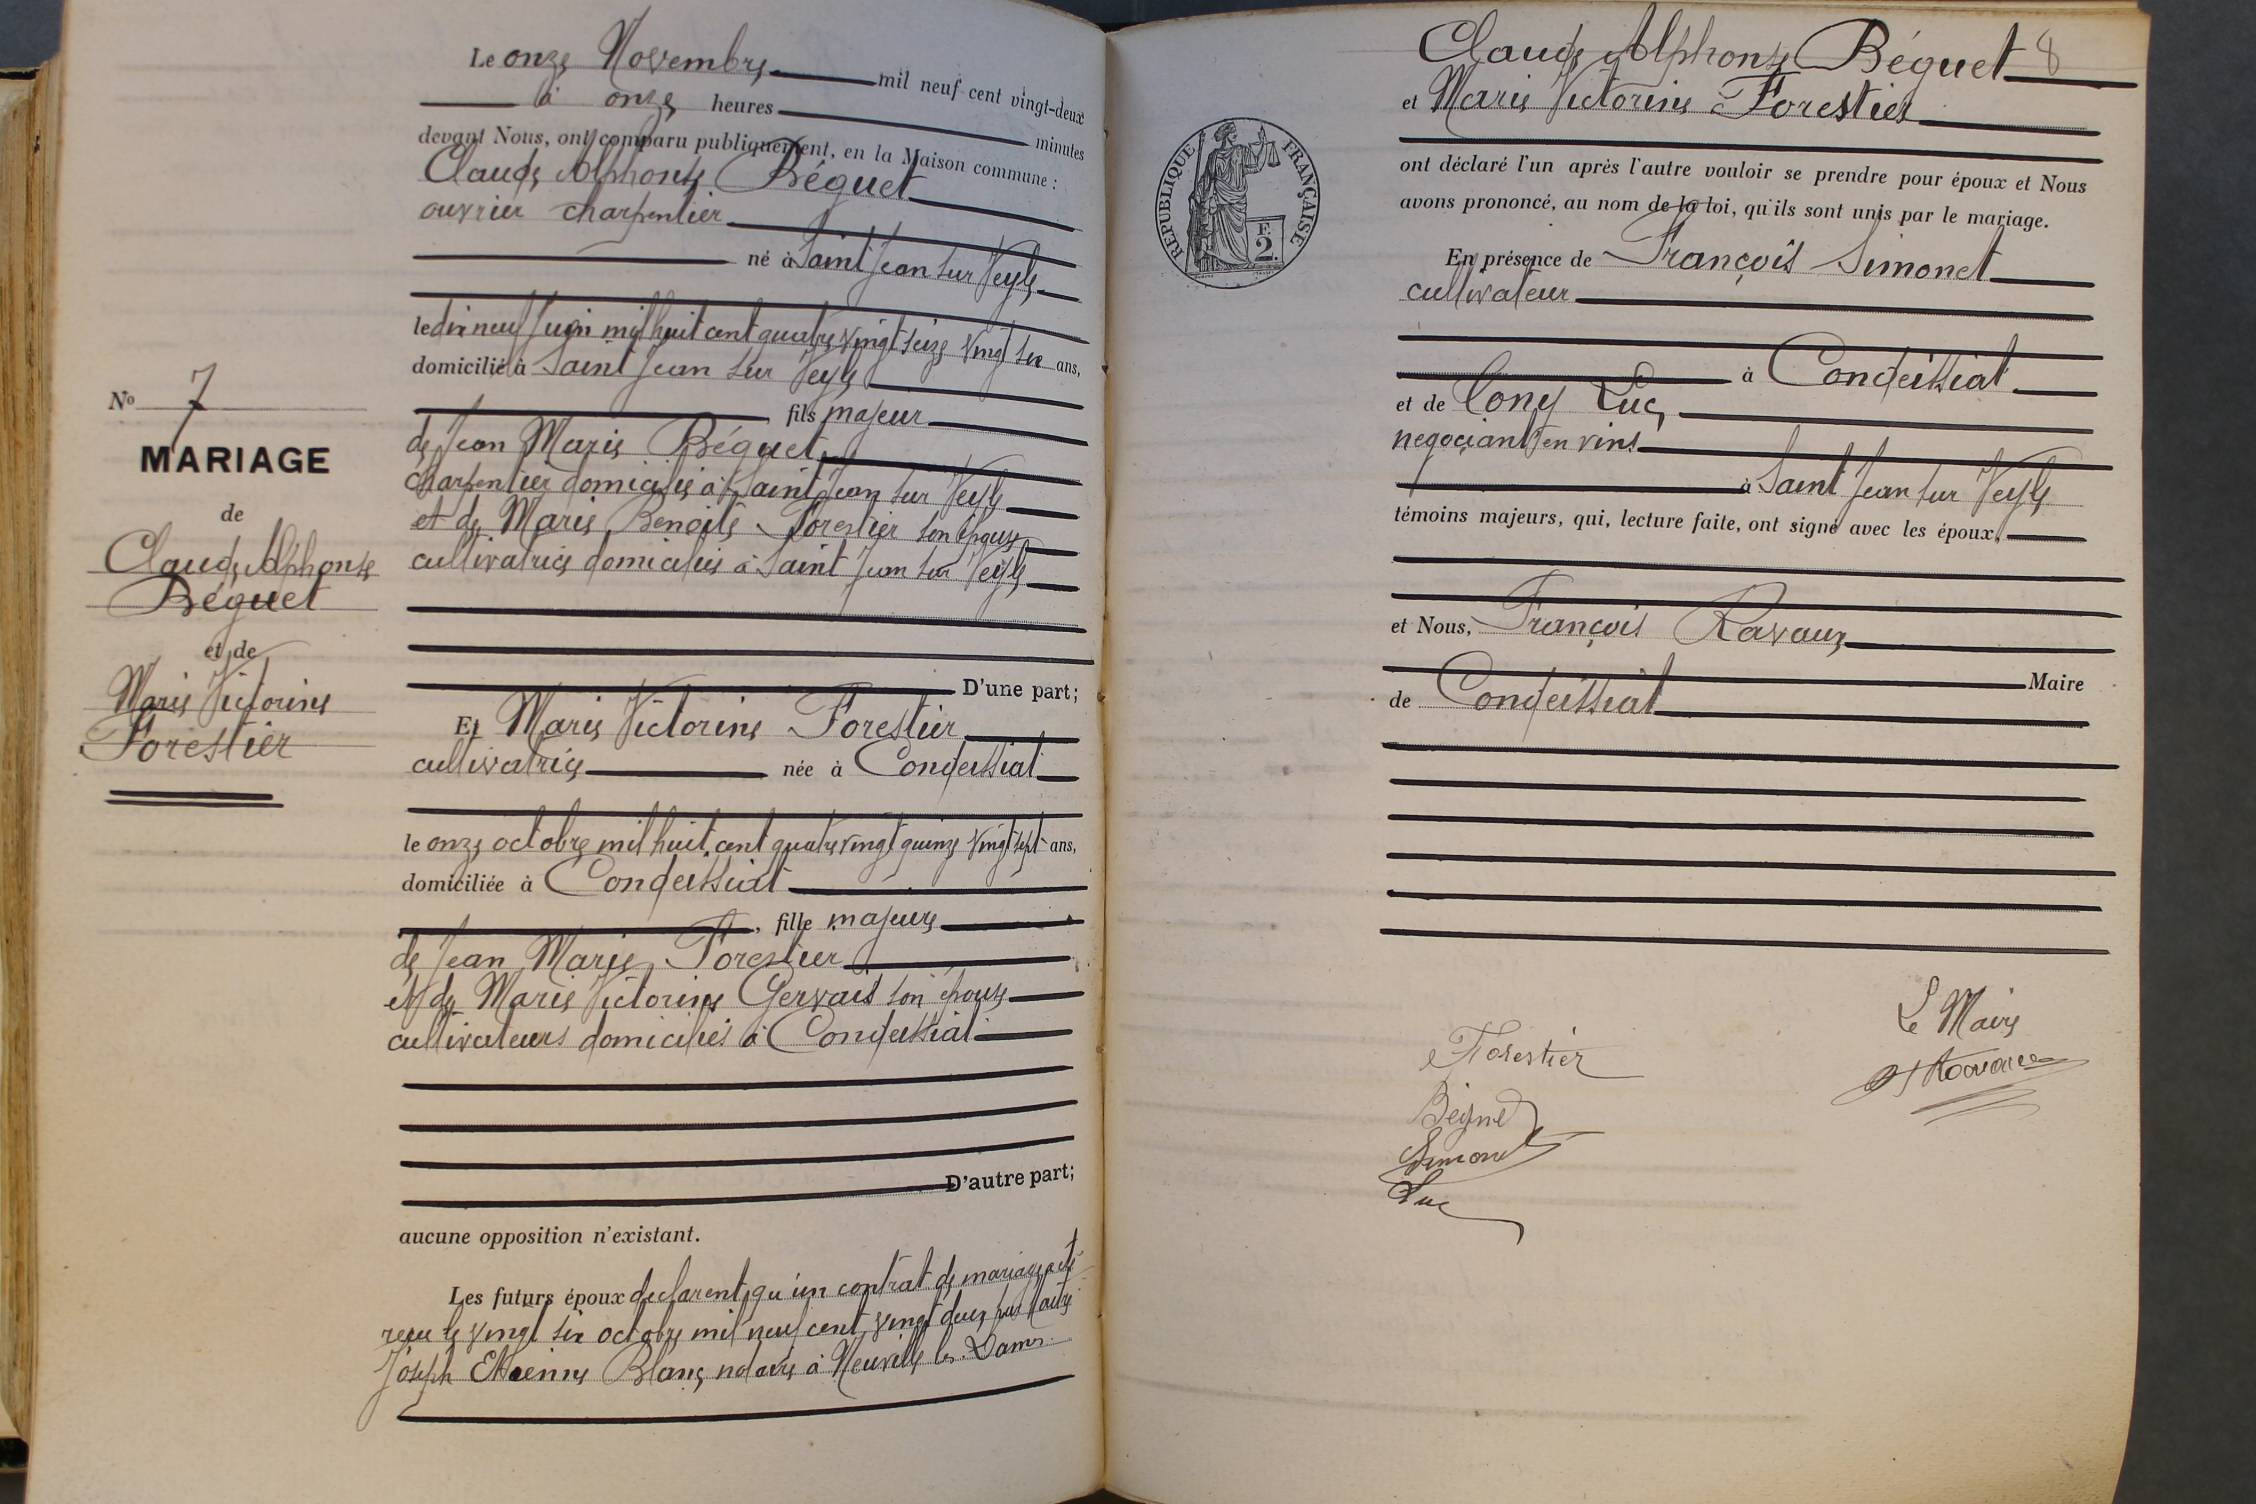 Le onze Novembre mil neuf cent vingt-deux
à onze heures minutes
devant Nous, ont comparu publiquement, en la Maison commune :
Claude Alphonse Béguet
ouvrier charpentier
né à Saint Jean sur Veyle
le dix neuf Juin mil huit cent quatre vingt seize vingt six ans,
domicilié à Saint Jean sur Veyle
fils majeur
de Jean Marie Béguet
charpentier domicilié à Saint Jean sur Veyle
et de Marie Benoite Forestier son épouse
cultivatrice domiciliés à Saint Jean sur Veyle
D'une part;
Et Marie Victorine Forestier
cultivatrice née à Condeissiat
le onze octobre mil huit cent quatre vingt quinze vingt sept ans,
domiciliée à Condeissiat
, fille majeure
de Jean Marie Forestier
et de Marie Victorine Gervais son épouse
cultivateurs domiciliés à Condeissiat
D'autre part;
aucune opposition n'existant.
Les futurs époux déclarent qu'un contrat de mariage a été
reçu le vingt six octobre mil neuf cent vingt deux par Maitre
Joseph Etienne Blanc, notaire à Neuville les Dames
No 7
MARIAGE
de
Claude Alphonse
Béguet
et de
Marie Victorine
Forestier
8
Claude Alphonse Béguet
et Marie Victorine Forestier
ont déclaré l'un après l'autre vouloir se prendre pour époux et Nous
avons prononcé, au nom de la loi, qu'ils sont unis par le mariage.
En présence de François Simonet
cultivateur
à Condeissiat
et de Cony Luc,
negociant en vins
à Saint Jean sur Veyle
témoins majeurs, qui, lecture faite, ont signé avec les époux,
et Nous, François Ravaux
Maire
de Condeissiat
RÉPUBLIQUE FRANÇAISE
F.
2.
Le Maire
Forestier
Béguet
Simonet
Luc